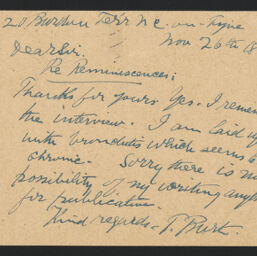 20 Burdon Terr N.C. on-Tyne
Nov 26th 18
Dear Sir.
Re Reminiscences;
Thanks for yours. Yes. I remem
the interview. I am laid up
with bronchitis which seems to
chronic. Sorry there is no
possibility of my writing anyth
for publication.
Kind regards. T. Burt.